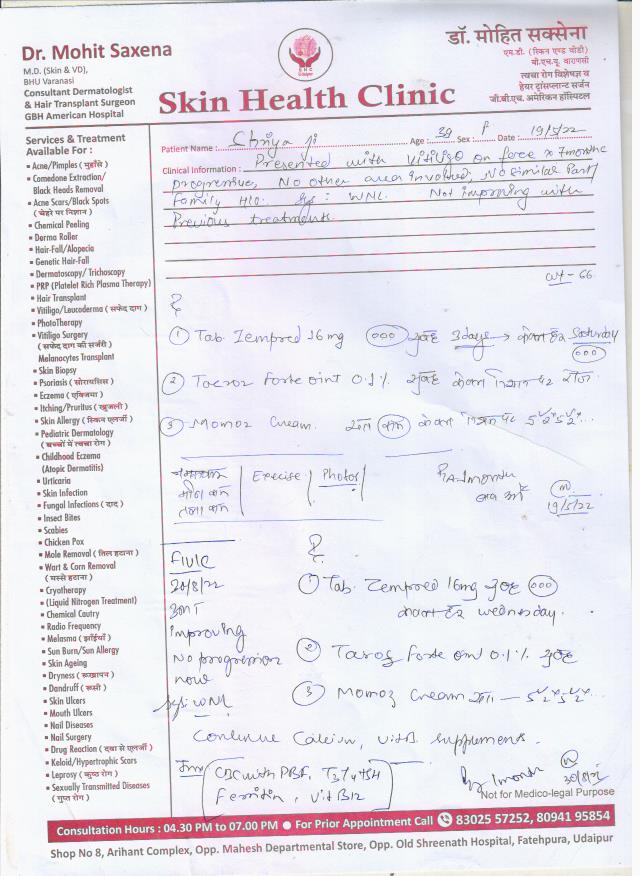 Dr. Mohit Saxena
M.D. (Skin & VD),
BHU Varanasi
Consultant Dermatologist
& Hair Transplant Surgeon
GBH American Hospital
SHC
Udaipur
डॉ. मोहित सक्सेना
एम.डी. (स्किन एण्ड वीडी)
बी.एच.यू. वाराणसी
त्वचा रोग विशेषज्ञ व
हेयर ट्रांसप्लान्ट सर्जन
जी.बी.एच. अमेरिकन हॉस्पिटल
Skin Health Clinic
Services & Treatment
Available For :
Acne/Pimples ( मुहाँसे )
Comedone Extraction/
Black Heads Removal
Acne Scars/Black Spots
( चेहरे पर निशान )
Chemical Peeling
Derma Roller
Hair-Fall/Alopecia
Genetic Hair-Fall
Dermatoscopy/ Trichoscopy
PRP (Platelet Rich Plasma Therapy)
Hair Transplant
Vitiligo/Leucoderma ( सफेद दाग )
PhotoTherapy
Vitiligo Surgery
( सफेद दाग की सर्जरी )
Melanocytes Transplant
Skin Biopsy
Psoriasis ( सोरायसिस )
Eczema ( एक्जिमा )
Itching/Pruritus ( खुजली )
Skin Allergy ( स्किन एलर्जी )
Pediatric Dermatology
( बच्चों में त्वचा रोग )
Childhood Eczema
(Atopic Dermatitis)
Urticaria
Skin Infection
Fungal Infections ( दाद )
Insect Bites
Scabies
Chicken Pox
Mole Removal ( तिल हटाना )
Wart & Corn Removal
( मस्से हटाना )
Cryotherapy
(Liquid Nitrogen Treatment)
Chemical Cautry
Radio Frequency
Melasma ( झाँईयाँ )
Sun Burn/Sun Allergy
Skin Ageing
Dryness ( रूखापन )
Dandruff ( रूसी )
Skin Ulcers
Mouth Ulcers
Nail Diseases
Nail Surgery
Drug Reaction ( दवा से एलर्जी )
Keloid/Hypertrophic Scars
Leprosy ( कुष्ठ रोग )
Sexually Transmitted Diseases
( गुप्त रोग )
Patient Name : ji Age : 39 Sex : F Date : 19/5/22
Clinical Information : Presented with vitiligo on face x 7 months
progressive, No other area involved, No similar Past/
family H/o. Sys: WNL. Not improving with
Previous treatments.
wt - 66
① Tab. Zempred 16mg सुबह 3 days केवल हर Saturday
② Tacroz Forte oint 0.1% सुबह केवल निशान पर रोज
③ Momoz Cream. रात केवल निशान पर 5 2 5 2 ...
Exercise Photos
19/5/22
F/U/C
20/8/22
3MT
improving
No progression
now
sys: WNL
① Tab. Zempred 16mg सुबह
केवल हर wednesday.
② Tacroz Forte oint 0.1% सुबह
③ Momoz Cream रात — 5 2 5 2 ...
Continue Calcium, vit B. supplements.
CBC with PBF, T3 T4 TSH
Ferritin, vit B12
1 month
Not for Medico-legal Purpose
Consultation Hours : 04.30 PM to 07.00 PM ● For Prior Appointment Call 83025 57252, 80941 95854
Shop No 8, Arihant Complex, Opp. Mahesh Departmental Store, Opp. Old Shreenath Hospital, Fatehpura, Udaipur